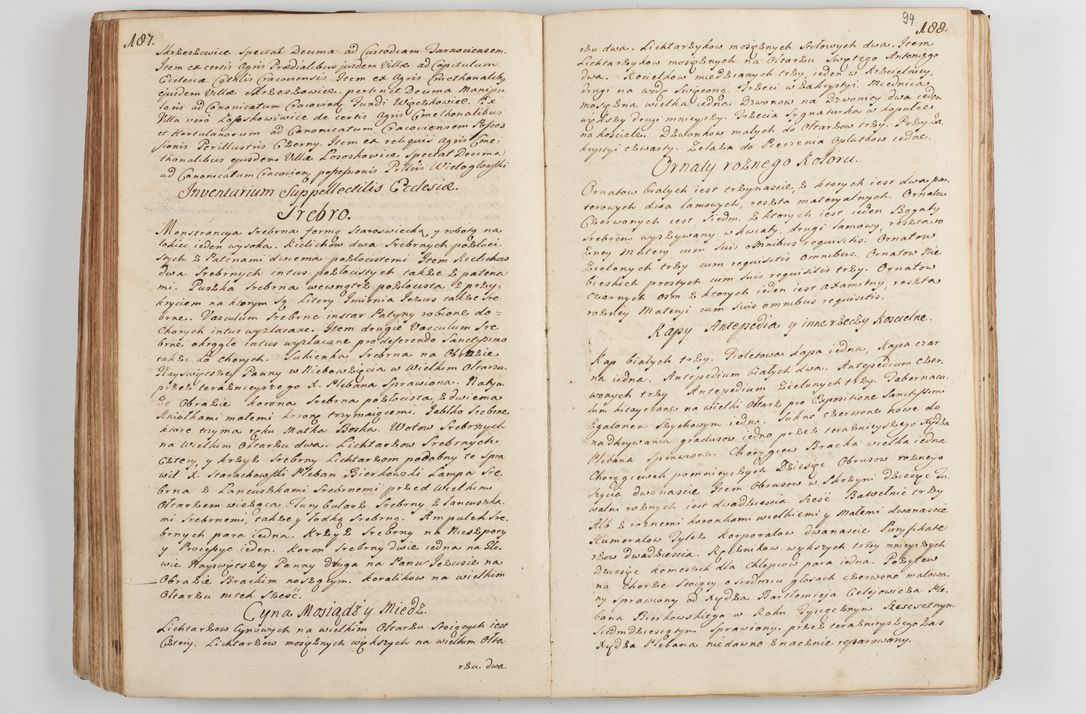 187.
Skrzeszowice Spectat Decima ad Custodiam Tarnoviensem.
Item ex certis Agris Prædialibus ejusdem Villæ ad Capitulum
Ecclesiæ Cathlis Cracoviensis Item ex Agris Cmethonalibg
ejusdem Villæ Skrzeszowice pertinet Decima Manipu
laris ad Canonicatum Cracovien: Fundi Wężchowice. Ex
Villa vero Łososkowice de certis Agris Cmethonalibus
et Hortulanorum ad Canonicatum Cracoviensem Posses
sionis Perillustris Czerny. Item ex reliquis Agris Cme-
thonalibus ejusdem Villæ Łososkowice Spectat Decima
ad Canonicatum Cracovien: possessionis Prlllis Wielogłowski
Inventarium Suppellectilis Ecclesiæ
Srebro.
Monstrancya Srebrna formą Staroswiecką y robotą na
łokiec ieden wysoka. Kielichow dwa Srebrnych pozłoci-
stych z Patenami dwiema pozłocistemi Item Kielichow
dwa Srebrnych intus pozłocistych także z patena
mi. Puszka Srebrna wewnątrz pozłocista z przy-
kryciem na ktorym Są Litery Imienia Jezus także Sre
brne. Vasculum Srebrne instar Patyny robione do-
Chorych intus wyzłacane. Item drugie Vasculum Sre
brne okrągłe intus wyzłacane pro deferendo Sanctissimo
także do Chorych. Sukienka Srebrna na Obrazie
Nayswiętszey Panny w Niebowzięcia w Wielkim Ołtarzu
przez teraznieyszego X. Plebana Sprawiona. Na tym
że Obrazie korona Srebrna pozłocista z dwiema
Aniołkami małemi koronę trzymaiącemi. Jabłko Srebrne
ktore trzyma ręku Matka Boska. Wotow Srebrnych
na Wielkim Ołtarzu dwa. Lichtarzow Srebrnych
Cztery, y krzyż Srebrny Lichtarzom podobny te Spra
wił X. Starachowski Pleban Bierkowski Lampa Sre-
brna z Łancuszkami Srebrnemi przed Wielkim
Ołtarzem wisząca. Turybularz Srebrny z łancuszka
mi Srebrnemi, także y Łodka Srebrna. Ampułek Sre-
brnych para iedna. Krzyż Srebrny na Nieszpory
y Processye ieden. Koron Srebrny dwie iedna na Gło-
wie Nayswiętszey Panny druga na Panu Jezusie na
Obrazie Brackim noszącym. Koralikow na wielkim
Ołtarzu nitek Sześć.
Cyna Mosiądz y Miedz.
Lichtarzow Cynowych na wielkim Ołtarzu Stoiących iest
Cztery. Lichtarzow mosiężnych większych na wielkim Ołta
rzu. dwa.
94
188.
rzu dwa. Lichtarzykow mosiężnych Stołowych dwa. Item
Lichtarzykow mosiężnych na Ołtarzu Swiętego Antoniego
dwa. Kociełkow miedzianych trzy, ieden w Krzcielnicy,
drugi na wodę Swięconą. Trzeci w Zakrystyi. Miednica
mosiężna wielka iedna Dzwonow na Dzwonicy dwa ieden
większy drugi mnieyszy. Trzecia Sygnaturka w kopułce
na kosciele Dzwonkow małych do Ołtarzow trzy. Przy Za
krystyi czwarty. Zelaza do Pieczenia Opłatkow iedne.
Ornaty roznego Koloru.
Ornatow białych iest trzynascie, z ktorych iest dwa pan
terowych dwa lamowych, reszta materyalnych. Ornatow
Czerwonych iest Siedm. z ktorych iest ieden Bogaty
Srebrem wyszywany w kwiaty, drugi lamowy, reszta ro
zney Materyi cum Suis omnibus requisitis. Ornatow
Zielonych trzy cum requisitis omnibus. Ornatow Nie
bieskich prostych cum Suis requisitis trzy. Ornatow
czarnych osm z ktorych ieden iest axamitny, reszta
rozney Materyi cum Suis omnibus requisitis.
Kapy Antepedia y inne rzeczy Koscielne.
Kap białych trzy. Fioletowa kapa iedna, Kapa czar
na iedna. Antepedium białych dwa. Antepedium Czer
wonych trzy Antepedium Zielonych trzy. Tabernacu
lum na wielki Ołtarz pro Expositione Sanctissimi
z galonem Szychowym iedno. Sukno Czerwone nowe do
nadkrywania gradusow iedno przez teraznieyszego Xiędza
Plebana Sprawione. Chorągiew Bracka wielka iedna
Chorągiewek pomnieyszych Dziesięć Obrusow roznego
szycia dwanascie Item Obrusow w Skrzyni dziesięć Tu
walni roznych iest dwadziescia Sześć Bawełnic trzy
Alb z roznemi koronkami wielkiemi y Małemi dwanascie
Humerałow Tyleż Korporałow dwanascie Puryfikate
rzow dwadziescia. Ręcznikow większych trzy mnieyszych
dziesięć Komeszek dla Chłopcow para iedna. Pozytyw
na Chorze Stoiący o siedmiu głosach czerwono malowa
ny Sprawiony od Xiędza Bartłomieja Celejowicza Ple
bana Bierkowskiego w Roku Tysięcznym Szescsetnym
Siedmdziesiątym Sprawiony. przez teraznieyszego zas
Xiędza Plebana niedawno znacznie reparowany.